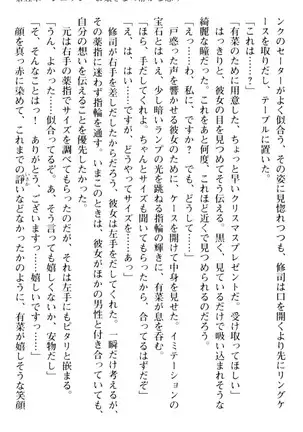 ンクのセーターがよく似合う、その姿に見惚れつつ、修司は先にリングケ
ースを取りだし、テーブルに置いた。
「有菜のために用意した、ちょっと早いクリスマスプレゼントだ。受け取ってほしい」
はっきりと、彼女の目を見つめてそう伝える。黒く、見ているだけで吸い込まれそうな
綺麗な瞳だった。これをあと何度、これほど近くで見つめられるのだろう。
「えっ……わ、私に、ですか？　でも、どうして……」
戸惑った声を響かせる彼女のために、ケースを開けて中身を見せた。イミテーションの
宝石とはいえ、少し暗いランプの光を跳ねる指輪の輝きに、有菜が息を呑む。
「ほら、手だしてくれよ。ちゃんとサイズも聞いてもらったから、合ってるはずだぞ」
「は、はい……ですが、どうやってサイズを……あっ」
修司が右手を差しだしたからだろう、彼女は左手をだしてくれた。一瞬だけ考え、
その薬指に指輪を通す。いまこのときは、彼女がほかの男性と付き合っていても、
自分の想いを伝えることを優先したかった。
元は右手の薬指でサイズを調べてもらったのだが、それは左手にもピタリと嵌まる。
「うん、よかった……似合ってるぞ。あ、そう言っても嬉しくないか、安物だし」
「そんなことはっ！　ありがとう、ございますっ……嬉しい、ですっ……」
顔を真っ赤に染めて、これまでの諍いなどなかったかのように、有菜は嬉しそうな笑顔